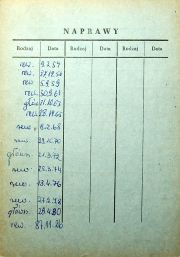 NAPRAWY
Rodzaj Data Rodzaj Data Rodzaj Data
rew. 9.2.54
rew.
rew. 5.9.59
rew. 30.9.61
główn. 21.10.63
rew. 28.10.65
rew. 6.2.68
rew. 29.10.70
główn. 21.3.72
rew. 25.3.74
rew. 13.4.76
rew. 27.2.78
główn. 28.4.80
rew.